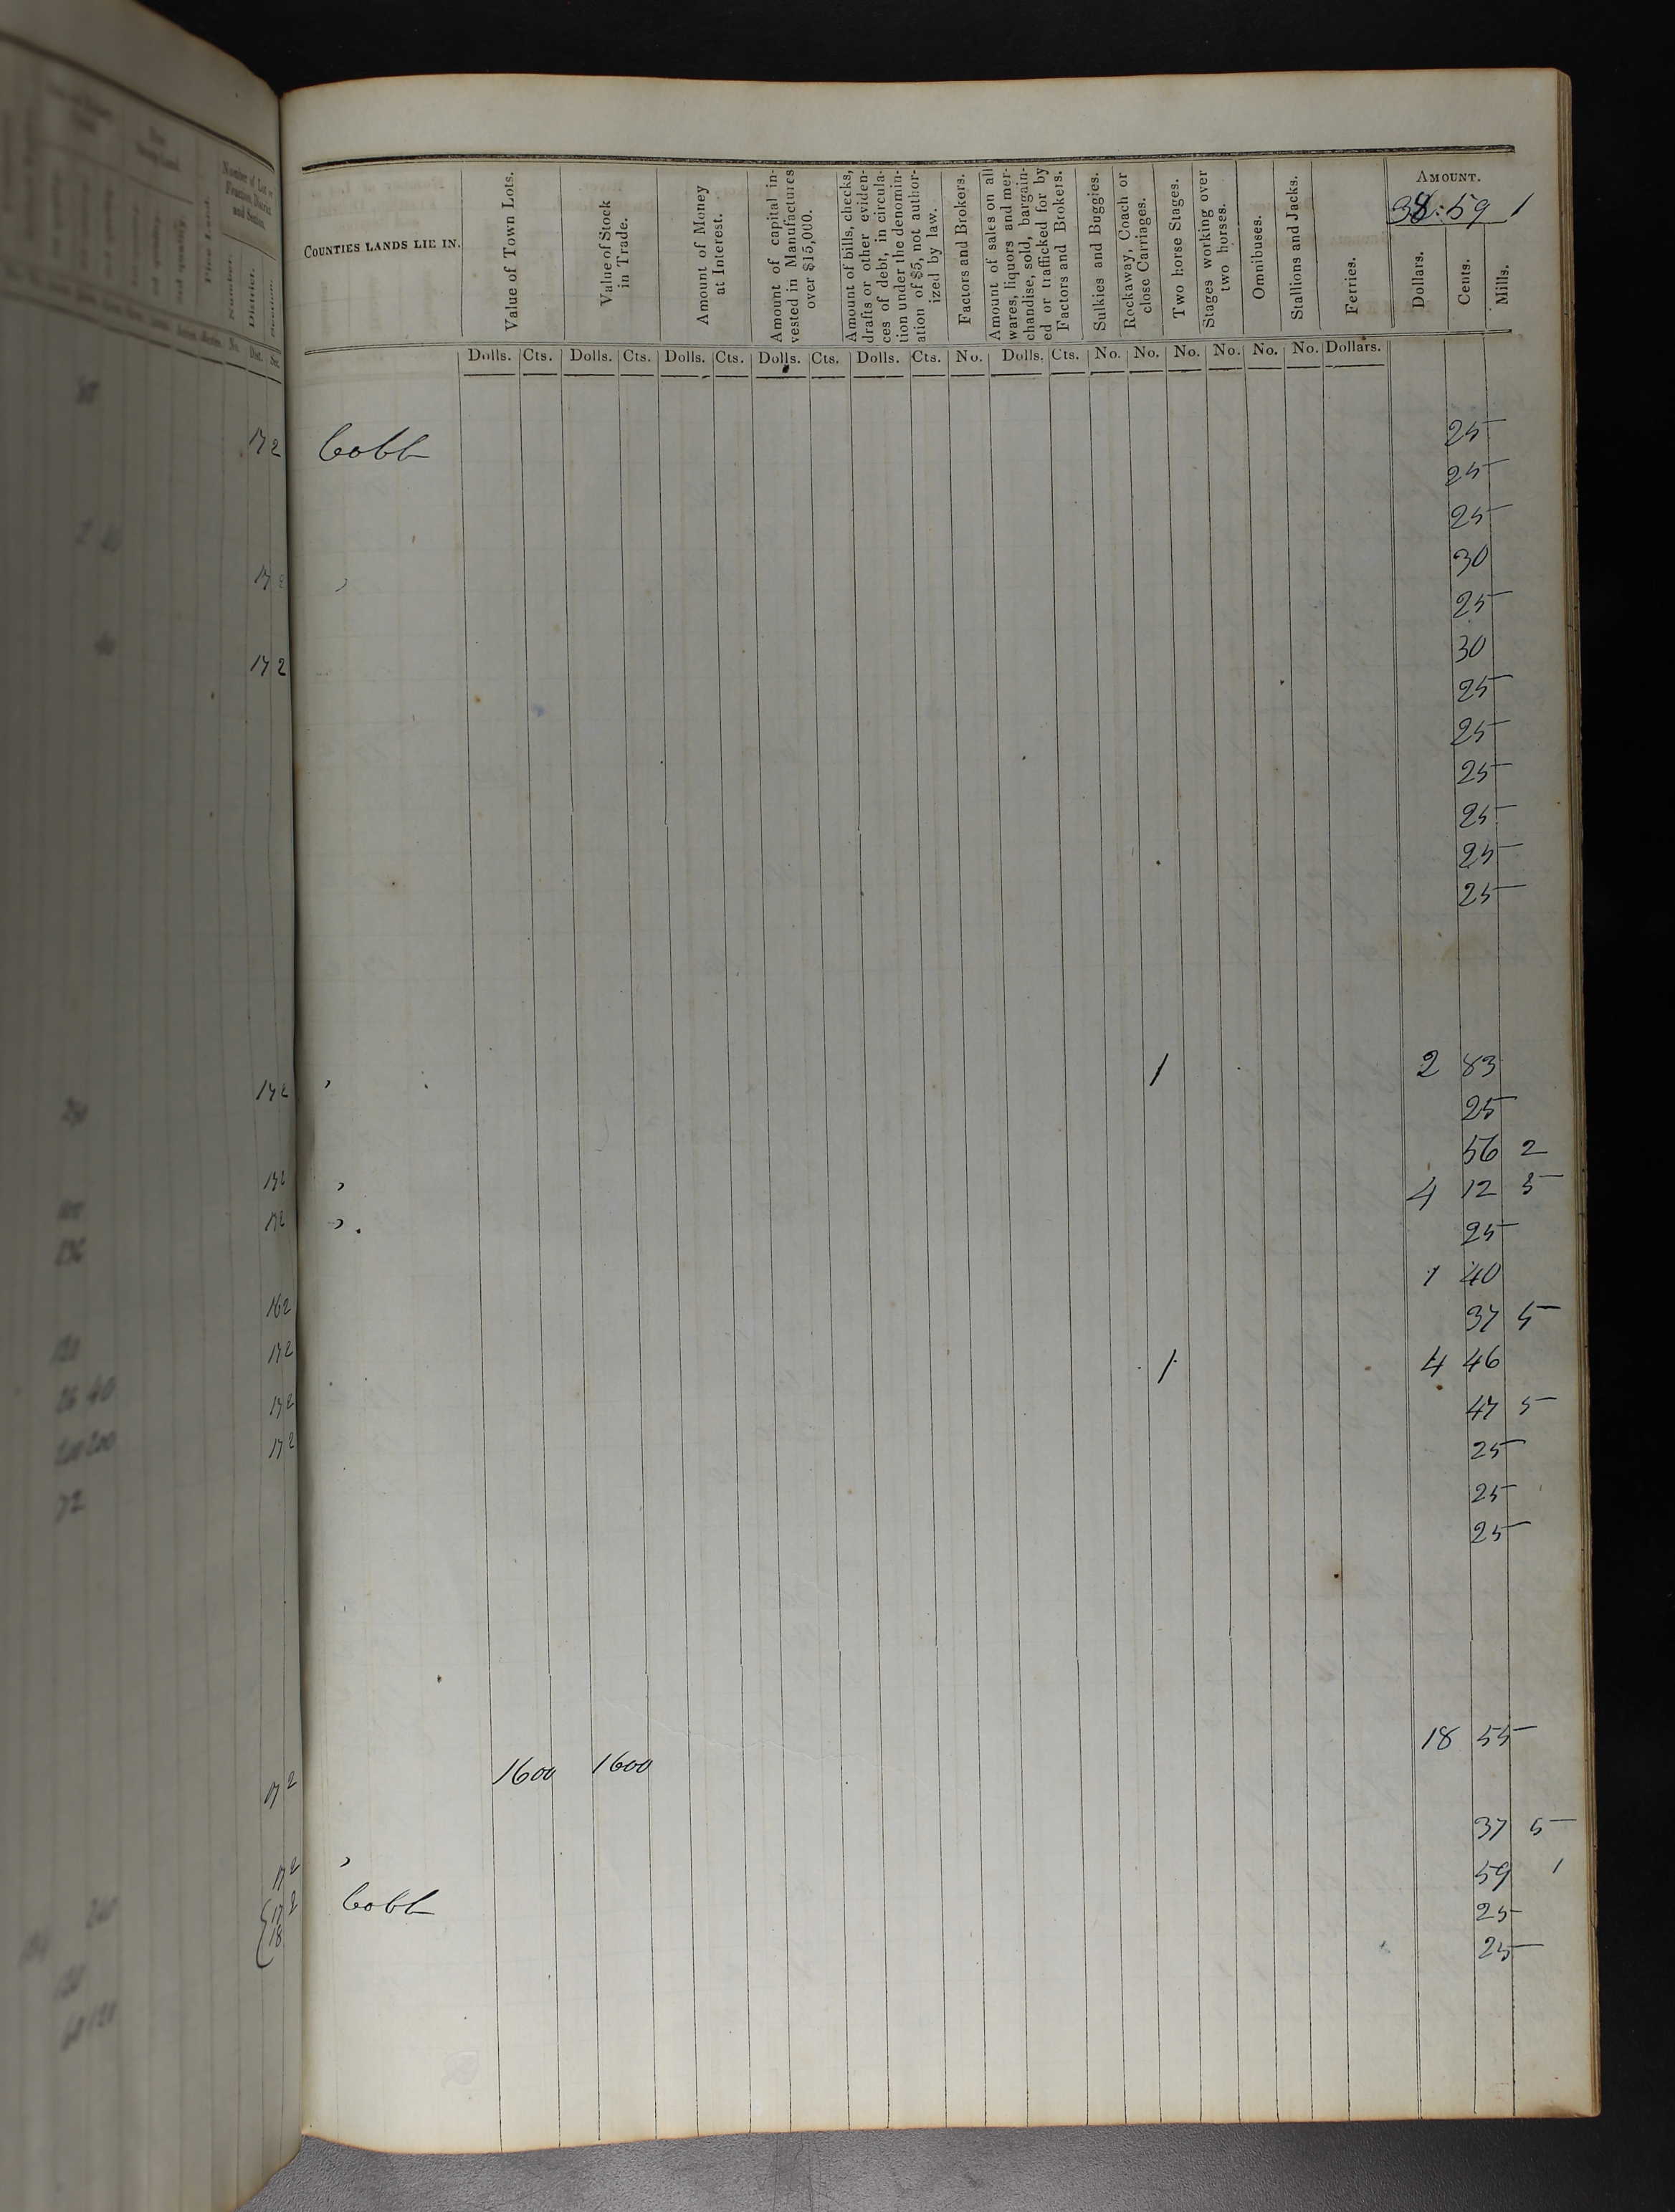 Number of Lot or
Fraction, District
and Section.
Number.
District.
Section.
No. Dist. Sec.
COUNTIES LANDS LIE IN.
Value of Town Lots.
Value of Stock
in Trade.
Amount of Money
at Interest.
Amount of capital in-
vested in Manufactures
over $15,000.
Amount of bills, checks,
drafts or other eviden-
ces of debt, in circula-
tion under the denomin-
ation of $5, not author-
ized by law.
Factors and Brokers.
Amount of sales on all
wares, liquors and mer-
chandise, sold, bargain-
ed or trafficked for by
Factors and Brokers.
Sulkies and Buggies.
Rockaway, Coach or
close Carriages.
Two horse Stages.
Stages working over
two horses.
Omnibuses.
Stallions and Jacks.
Ferries.
AMOUNT.
38:59 1
Dollars.
Cents.
Mills.
Dolls. Cts. Dolls. Cts. Dolls. Cts. Dolls. Cts. Dolls. Cts. No. Dolls. Cts. No. No. No. No. No. No. Dollars.
17 2 Cobb 25
25
25
30
17 2 " 25
17 2 30
25
25
25
25
25
25
17 2 " 1 2 83
25
56 2
17 2 " 4 12 5
17 2 " 25
1 40
16 2 37 5
17 2 1 4 46
17 2 47 5
17 2 25
25
25
18 55
17 2 1600 1600
37 5
17 2 " 59 1
17 2 Cobb 25
18 25